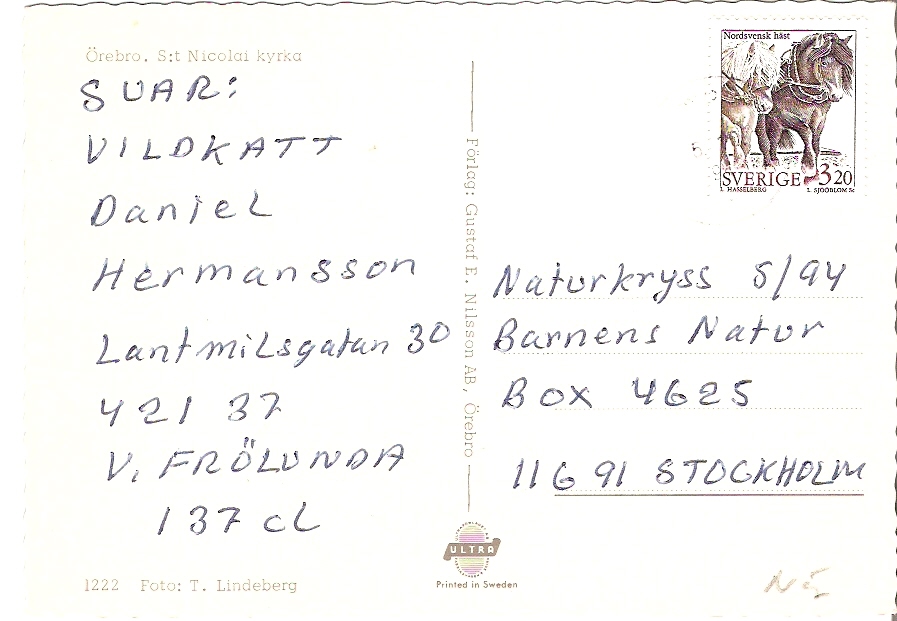 Örebro. S:t Nicolai kyrka
SVAR:
VILDKATT
Daniel
Hermansson
Lantmilsgatan 30
421 37
V. FRÖLUNDA
137 cL
1222 Foto: T. Lindeberg
Förlag: Gustaf E. Nilsson AB, Örebro
ULTRA
Printed in Sweden
Nordsvensk häst
SVERIGE 3 20
L. HASSELBERG L. SJÖÖBLOM Sc
Naturkryss 5/94
Barnens Natur
Box 4625
116 91 STOCKHOLM